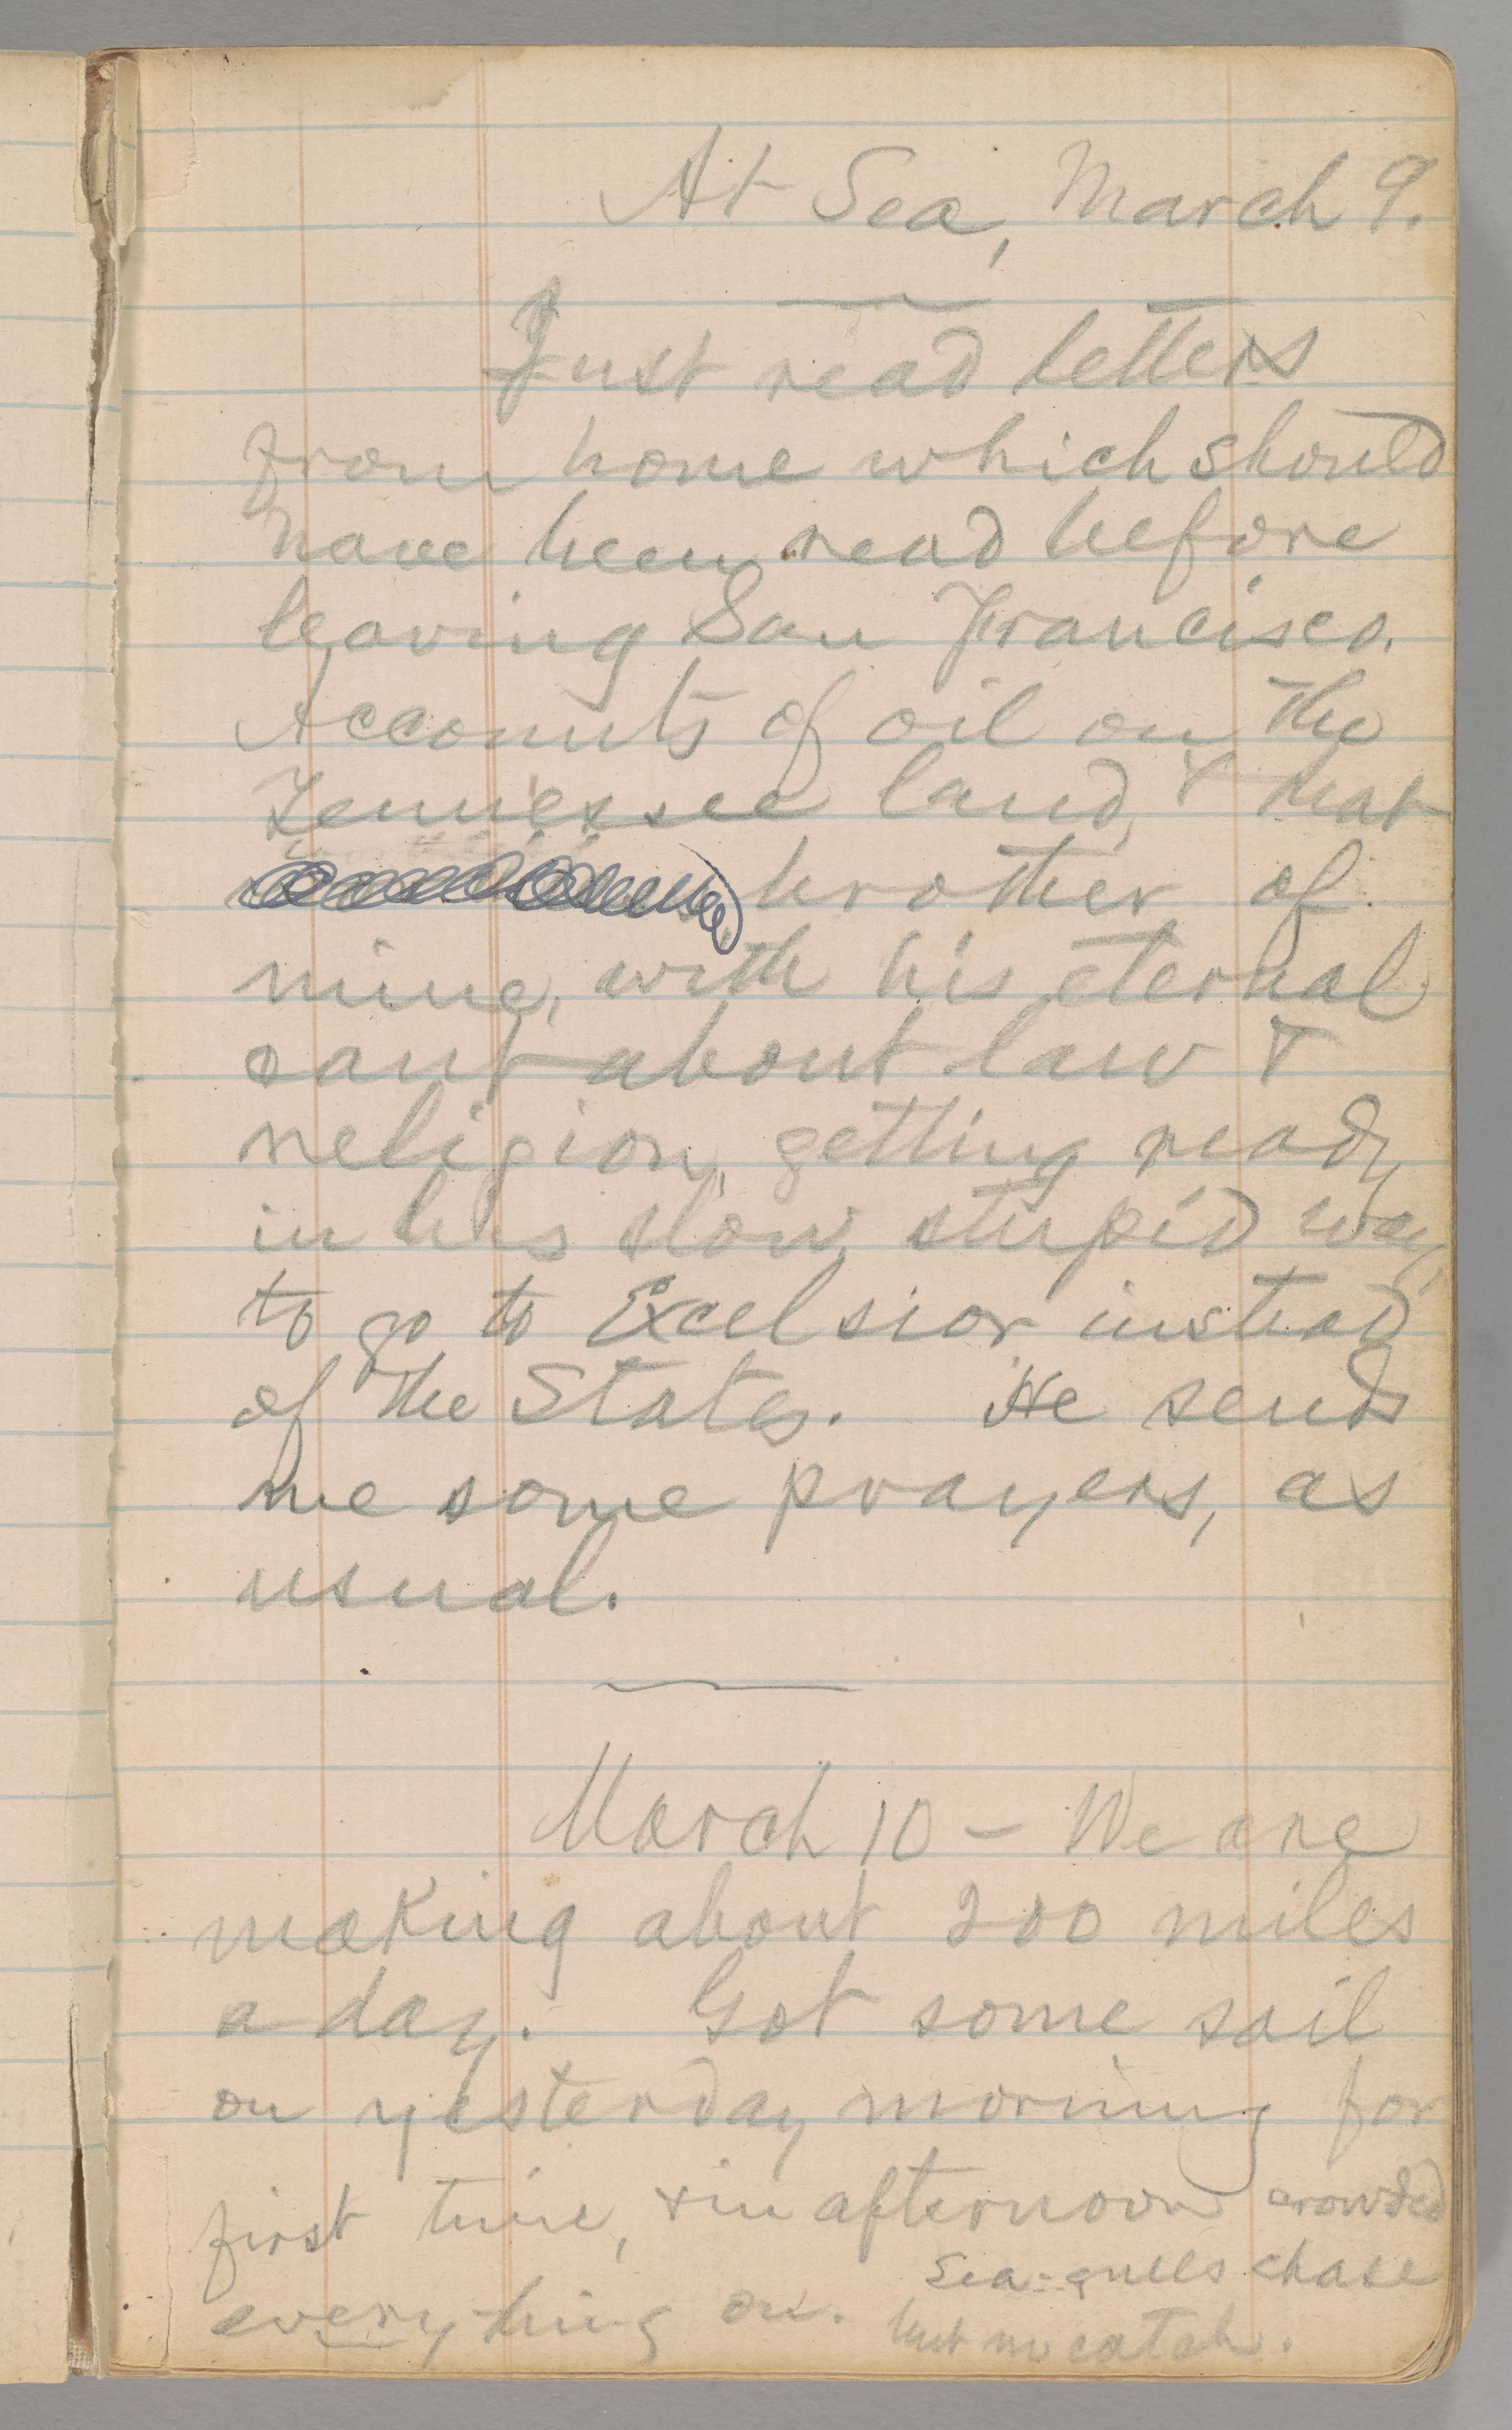 At Sea, March 9.
Just read letters
from home which should
have been read before
leaving San Francisco.
Accounts of oil on the
Tennessee land, & that
brother of
mine, with his eternal
cant about law &
religion, getting ready
in his slow, stupid way,
to go to Excelsior instead
of the States. He sends
me some prayers, as
usual.
March 10 — We are
making about 200 miles
a day. Got some sail
on yesterday morning for
first time, & in afternoon crowded
everything on. Sea-gulls chase
but no catch.